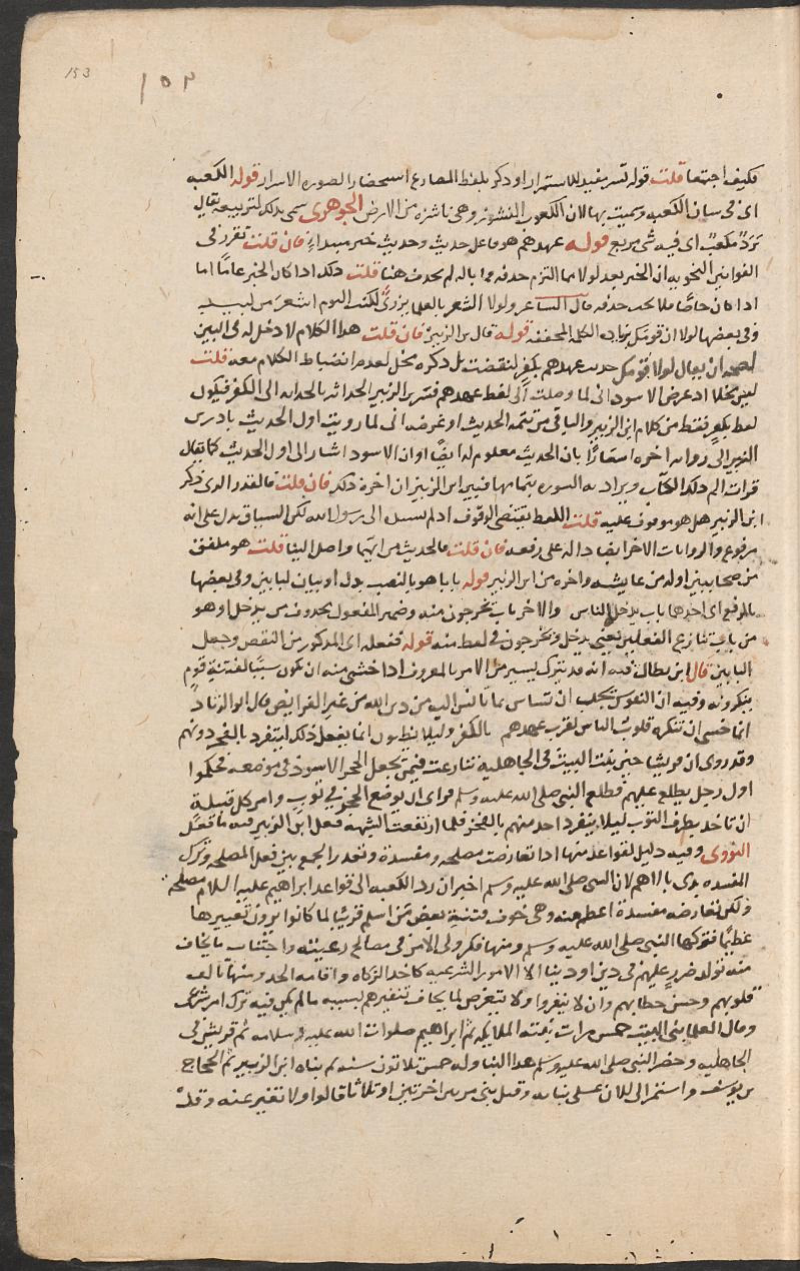 153
١٥٣
فكيف اجتمعا قلت قوله تسر مفيد للاستمرار او ذكر بلفظ المضارع استحضارا لصورة الاسرار قوله الكعبه
اى فى شان الكعبه وسميت بها لان الكعوب النشوز وهى ناشزه من الارض الجوهرى سمى بذلك لتربيعه يقال
برد مكعب اى فيه شى مربع قوله عهدهم هو فاعل حديث وحديث خبر مبتداء فان قلت تقرر فى
القوانين النحويه ان الخبر بعد لولا مما التزم حذفه فما باله لم يحذف هنا قلت ذلك اذا كان الخبر عاما اما
اذا كان خاصا فلا يجب حذفه قال الشاعر ولولا الشعر بالعلما يزرى لكنت اليوم اشعر من لبيد
وفى بعضها لولا ان قومك بزيادة الكلمة المخففه قوله قال بن الزبير فان قلت هذا الكلام لا دخل له فى البين
لصحه ان يقال لولا قومك حديث عهدهم بكفر لنقضت بل ذكره مخل لعدم انضباط الكلام معه قلت
ليس مخلا اذ غرض الاسود انى لما وصلت الى لفظ عهدهم فسر ابن الزبير الحداثه بالحداثه الى الكفر فيكون
لفظ بكفر فقط من كلام ابن الزبير والباقى من تتمه الحديث او غرضه انى لما رويت اول الحديث بادر بن
الزبير الى رواية اخره اشعارا بان الحديث معلوم له ايضا او ان الاسود اشار الى اول الحديث كما يقال
قرات الم ذلك الكتاب ويراد به السوره بتمامها فبين ابن الزبير ان اخره ذلك فان قلت فالقدر الذى ذكره
ابن الزبير هل هو موقوف عليه قلت اللفظ يقتضى الوقوف اذ لم يسند الى رسول الله لكن السياق يدل على انه
مرفوع والروايات الاخر ايضا داله على رفعه فان قلت فالحديث من ايهما واصل الينا قلت هو ملفق
من صحابيين اوله من عايشه واخره من ابن الزبير قوله بابا هو بالنصب بدل او بيان لبابين وفى بعضها
بالرفع اى احدهما باب يدخل الناس والاخر باب يخرجون منه وضمير المفعول محذوف من يدخل او هو
من باب تنازع الفعلين يعنى يدخل ويخرجون فى لفظ منه قوله ففعله اى المذكور من النقص وجعل
البابين قال ابن بطال فيه انه قد يترك يسير من الامر بالمعروف اذا خشى منه ان يكون سببا لفتنة قوم
ينكرونه وفيه ان النفوس يجب ان تساس بما تانس اليه من دين الله من غير الفرايض قال ابو الزناد
انما خشى ان تنكره قلوب الناس لقرب عهدهم بالكفر وليلا يظنون انما يفعل ذلك لينفرد بالفخر دونهم
وقد روى ان قريشا حين بنت البيت فى الجاهلية تنازعت فيمن يجعل الحجر الاسود فى موضعه فحكموا
اول رجل يطلع عليهم فطلع النبى صلى الله عليه وسلم فراى ان يوضع الحجر فى ثوب وامر كل قبيلة
ان تاخذ بطرف الثوب ليلا ينفرد احد منهم بالفخر فلما ارتفعت الشبهة فعل ابن الزبير فيه ما فعل
النووى وفيه دليل لقواعد منها اذا تعارضت مصلحه ومفسدة وتعذر الجمع بين فعل المصلحه وترك
المفسده بدى بالاهم لان النبى صلى الله عليه وسلم اخبر ان رد الكعبه الى قواعد ابراهيم عليه السلام مصلحه
ولكن تعارضه مفسدة اعظم منه وهى خوف فتنة بعض من اسلم قريبا لما كانوا يرون تغييرها
عظيما فتركها النبى صلى الله عليه وسلم ومنها فكر ولى الامر فى مصالح رعيته واجتناب ما يخاف
منه تولد ضرر عليهم فى دين او دنيا الا الامور الشرعيه كاخذ الزكاه واقامة الحد ومنها تالف
قلوبهم وحسن حطابهم وان لا ينفروا ولا يتعرض لما يخاف تنفيرهم بسببه ما لم يكن فيه ترك امر شرعى
وقال العلما بنى البيت خمس مرات بنته الملايكه ثم ابراهيم صلوات الله عليه وسلامه ثم قريش فى
الجاهليه وحضر النبى صلى الله عليه وسلم هذا البنا وله خمس ثلاثون سنه ثم بناه ابن الزبير ثم الحجاج
بن يوسف واستمر الى الان على بنايه وقيل بنى مرتين اخرتين او ثلاثا قالوا ولا تغير عنه وقد